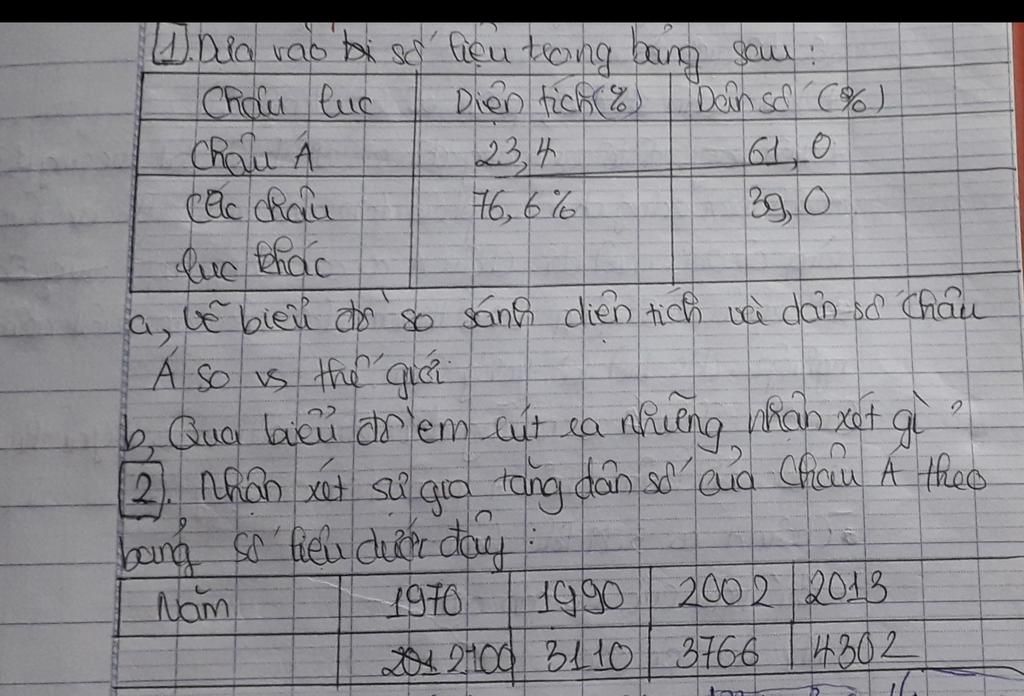 1. Dựa vào số liệu trong bảng sau:
Châu lục Diện tích(%) Dân số (%)
Châu Á 23,4 61,0
Các châu 76,6% 39,0
lục khác
a, Vẽ biểu đồ so sánh diện tích và dân số Châu
Á so vs thế giới.
b, Qua biểu đồ em rút ra những nhận xét gì?
2. Nhận xét sự gia tăng dân số của Châu Á theo
bảng số liệu dưới đây:
Năm 1970 1990 2002 2013
2100 3110 3766 4302